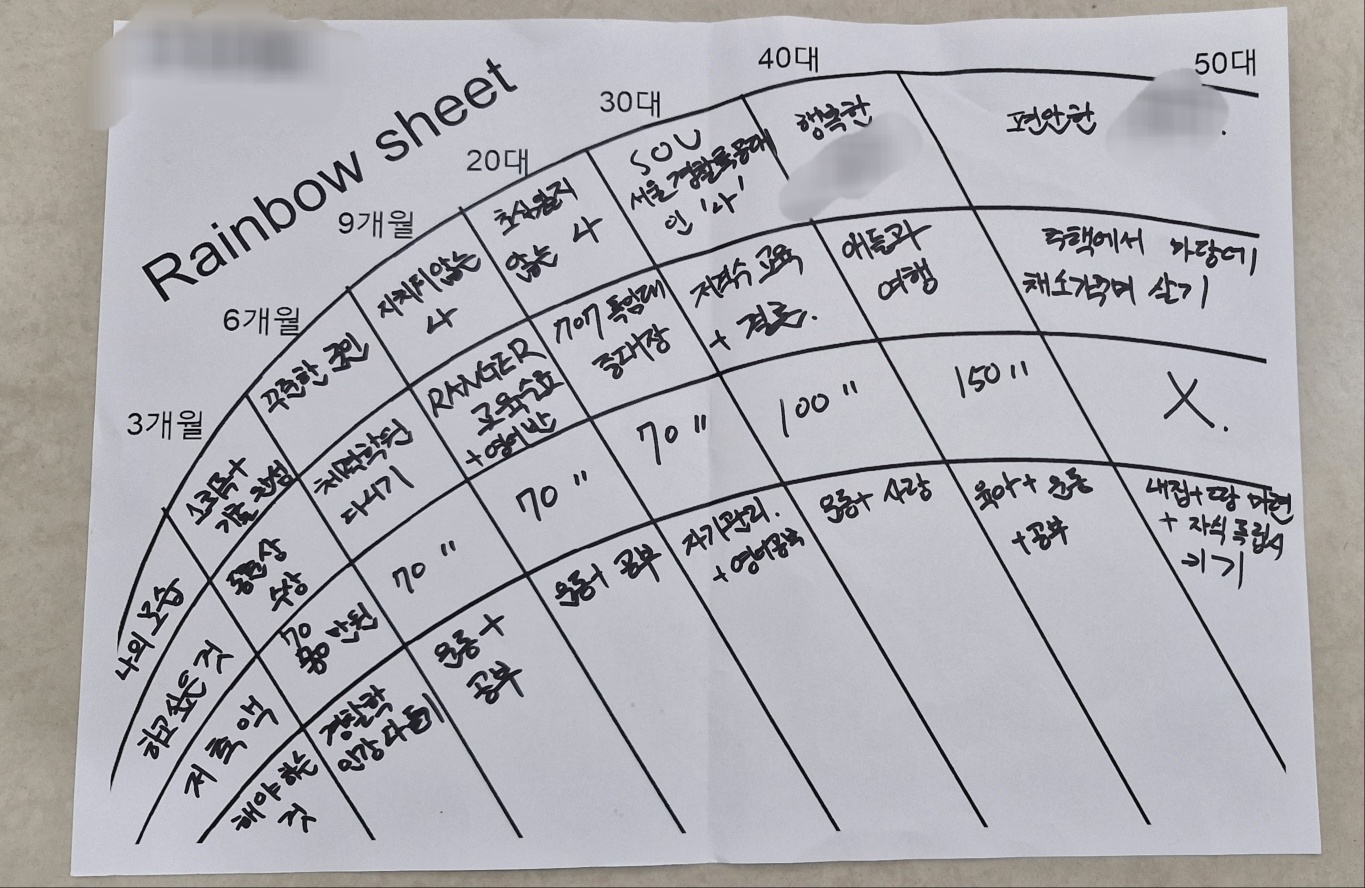 Rainbow sheet
3개월
6개월
9개월
20대
30대
40대
50대
나의 모습
소극족+
기술 완성
꾸준한 군인
지치지 않는
나
초심잃지
않는 나
SOU
서울 경찰특공대
인 '나'
행복한
편안한
하고 싶은 것
동원상
수상
체력학원
다니기
RANGER
교육수료
+영어반
707 특임대
중대장
저격수 교육
+ 결혼.
애들과
여행
주택에서 마당에
채소가꾸며 살기
저축액
70
만원
70 "
70 "
70 "
100 "
150 "
X.
해야 하는
것
경찰학
인강 다듣기
운동+
공부
운동+ 공부
자기관리.
+영어공부
운동+ 사랑
육아+ 운동
+공부
내집+땅 마련
+ 자식 독립시
키기